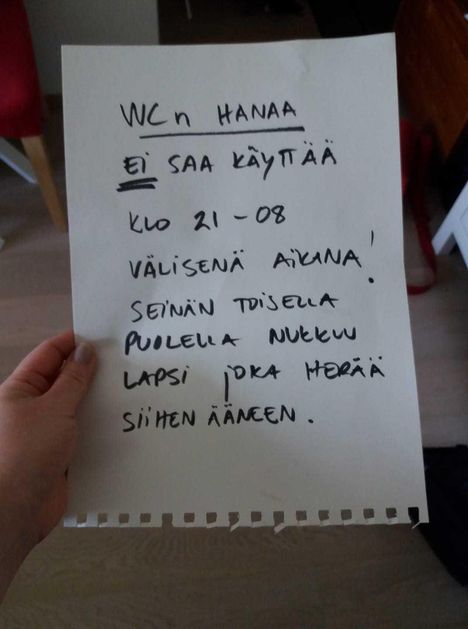 WCn HANAA
EI SAA KÄYTTÄÄ
KLO 21-08
VÄLISENÄ AIKANA!
SEINÄN TOISELLA
PUOLELLA NUKKUU
LAPSI JOKA HERÄÄ
SIIHEN ÄÄNEEN.